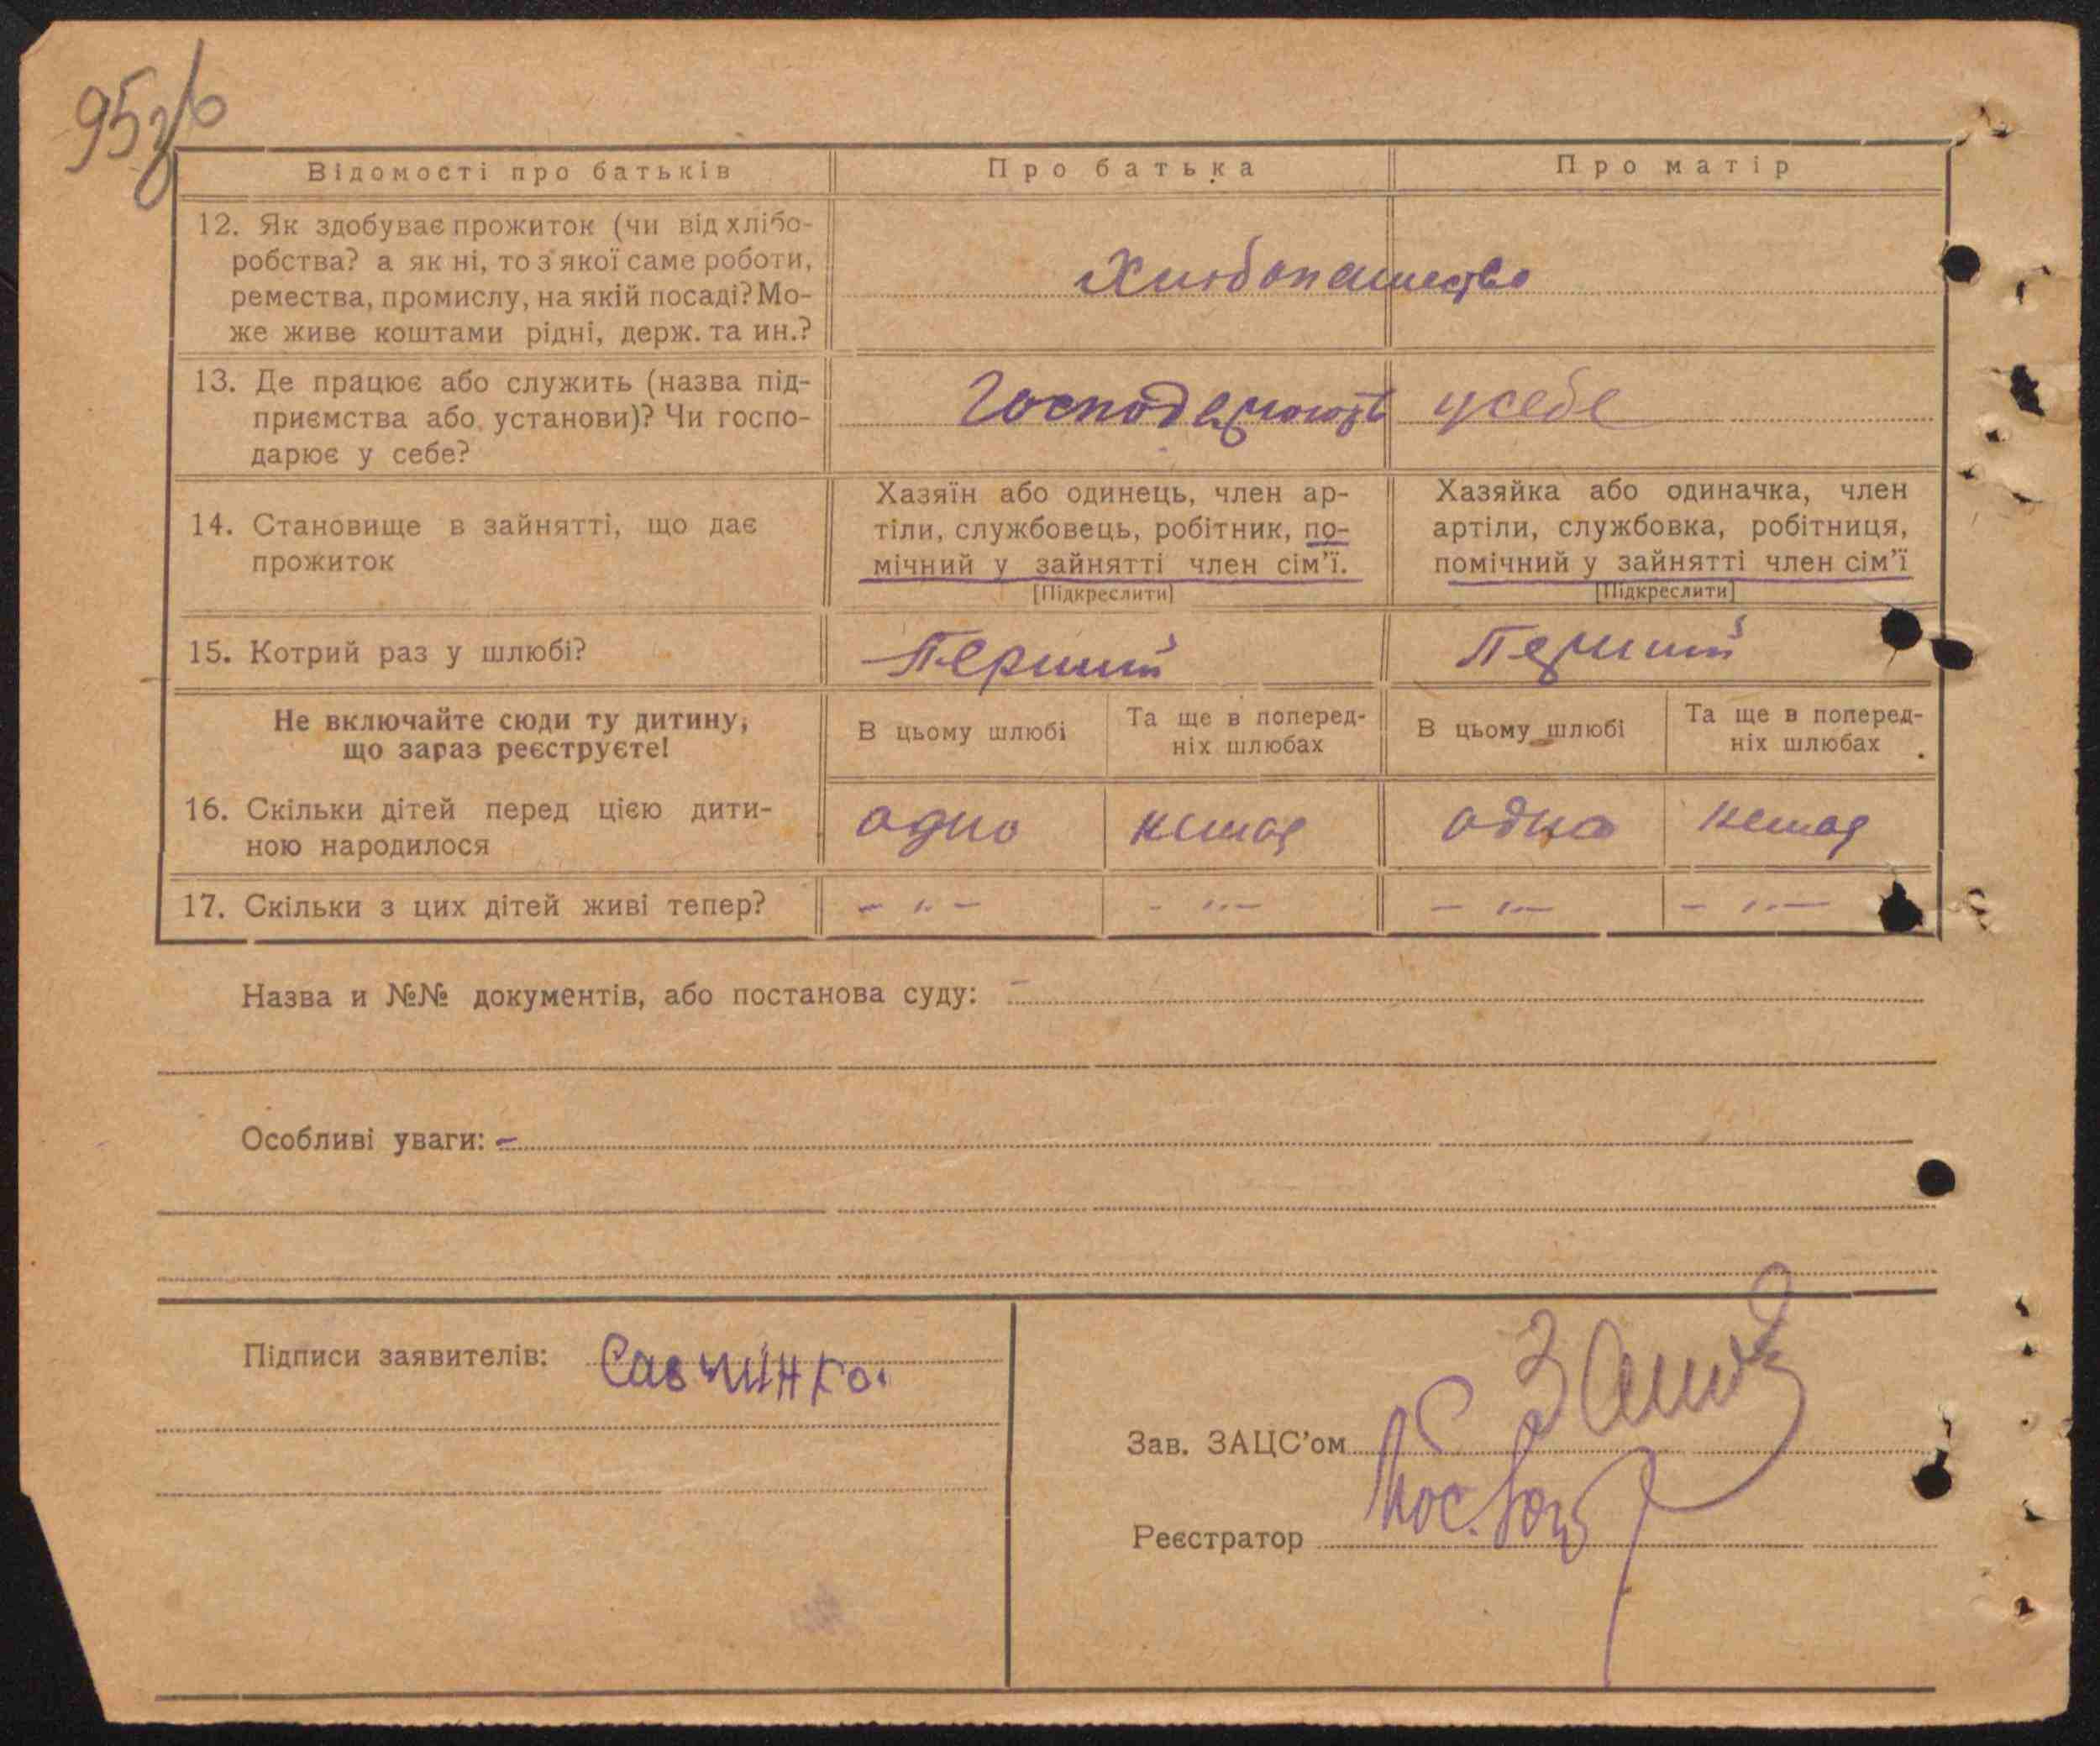 95зв
Відомості про батьків
Про батька
Про матір
12. Як здобуває прожиток (чи від хлібо-
робства? а як ні, то з якої саме роботи,
ремества, промислу, на якій посаді? Мо-
же живе коштами рідні, держ. та ин.?
Хлібопашество
13. Де працює або служить (назва під-
приємства або установи)? Чи госпо-
дарює у себе?
Господарюють у себе
14. Становище в зайнятті, що дає
прожиток
Хазяїн або одинець, член ар-
тіли, службовець, робітник, по-
мічний у зайнятті член сім'ї.
[Підкреслити]
Хазяйка або одиначка, член
артіли, службовка, робітниця,
помічний у зайнятті член сім'ї
[Підкреслити]
15. Котрий раз у шлюбі?
Перший
Перший
Не включайте сюди ту дитину,
що зараз реєструєте!
В цьому шлюбі
Та ще в поперед-
ніх шлюбах
В цьому шлюбі
Та ще в поперед-
ніх шлюбах
16. Скільки дітей перед цією дити-
ною народилося
одно
немає
одно
немає
17. Скільки з цих дітей живі тепер?
– „ –
– „ –
– „ –
– „ –
Назва и №№ документів, або постанова суду: –
Особливі уваги: –
Підписи заявителів: Савчинко
Зав. ЗАЦС'ом
Реєстратор